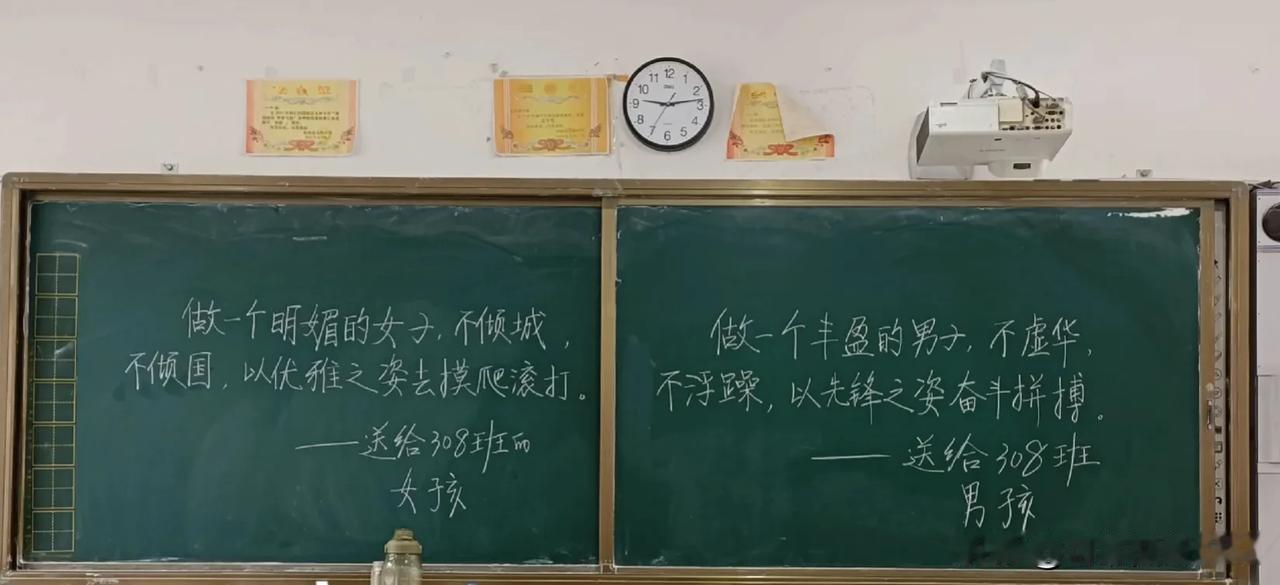 12
1
2
3
4
5
6
7
8
9
10
11
做一个明媚的女子，不倾城，
不倾国，以优雅之姿去摸爬滚打。
——送给308班的
女孩
做一个丰盈的男子，不虚华，
不浮躁，以先锋之姿奋斗拼搏。
——送给308班
男孩